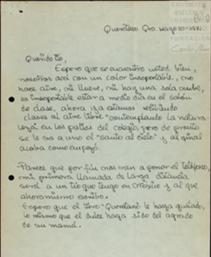 Querétaro Qro. mayo 10-1971.
Querido Tío,
Espero que se encuentre usted bien,
nosotros aquí con un calor insoportable, no
hace aire, ni llueve, ni hay una sola nube,
es insoportable estar a medio día en el salón
de clase, ahora ya estamos
clases al aire libre "contemplando la natura
en los patios del colegio, pero de pronto
se le va a uno el "santo al cielo" y al final
acaba como empezó.
Parece que por fin nos van a poner el teléfono,
mi primera llamada de larga distancia
será a un tío que tengo en México y al que
ahora mismo escribo.
Espero que el libro "Querétaro" le haya gustado,
lo mismo que el haya sido del agrado
de su mamá.